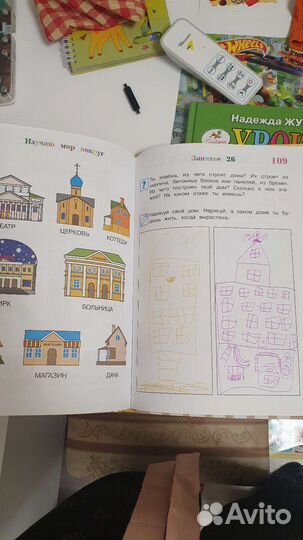 WHEELS
Надежда ЖУ
УРОК
Изучаю мир вокруг
ЕАТР
ЦЕРКОВЬ
КОТТЕДЖ
ИРК
БОЛЬНИЦА
МАГАЗИН
МАГАЗИН
ДАЧА
Занятие 26
109
?
Ты знаешь, из чего строят дома? Их строят из
кирпича, бетонных блоков или панелей, из брёвен.
Из чего построен твой дом? Сколько в нём эта-
жей? На каком этаже ты живёшь?
Нарисуй свой дом. Нарисуй, в каком доме ты бу-
дешь жить, когда вырастешь.
Avito